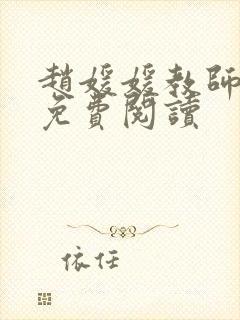 趙媛媛教師
免費閱讀
依任